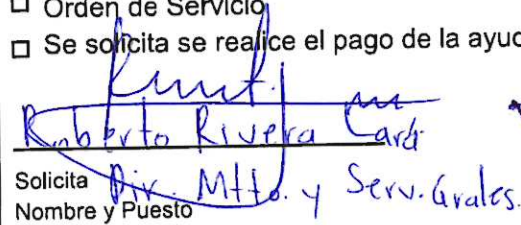 □ Orden de Servicio
□ Se solicita se realice el pago de la ayuc
Roberto Rivera
Solicita Dir. Mtto. y Serv. Grales.
Nombre y Puesto